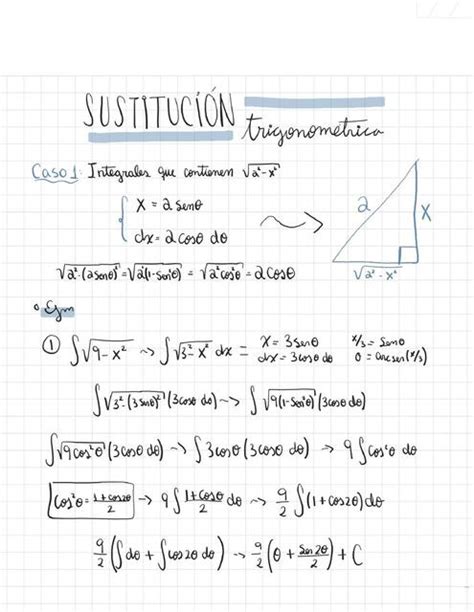 SUSTITUCIÓN trigonometrica
Caso 1: Integrales que contienen √a²-x²
{ x = a senθ
dx = a cosθ dθ
a
x
√a²-x²
√a²-(a senθ)² = √a²(1-sen²θ) = √a²cos²θ = a cosθ
○ Ejm
① ∫√9-x² ~> ∫√3²-x² dx = x = 3senθ x/3 = senθ
dx = 3cosθ dθ θ = arcsen(x/3)
∫√3²-(3senθ)² (3cosθ dθ) ~> ∫√9(1-sen²θ) (3cosθ dθ)
∫√9cos²θ (3cosθ dθ) ~> ∫3cosθ (3cosθ dθ) → 9∫cos²θ dθ
cos²θ = 1+cos2θ/2 → 9∫ 1+cosθ/2 dθ → 9/2 ∫(1+cos2θ)dθ
9/2 (∫dθ + ∫cos2θ dθ) → 9/2 (θ + sen2θ/2) + C